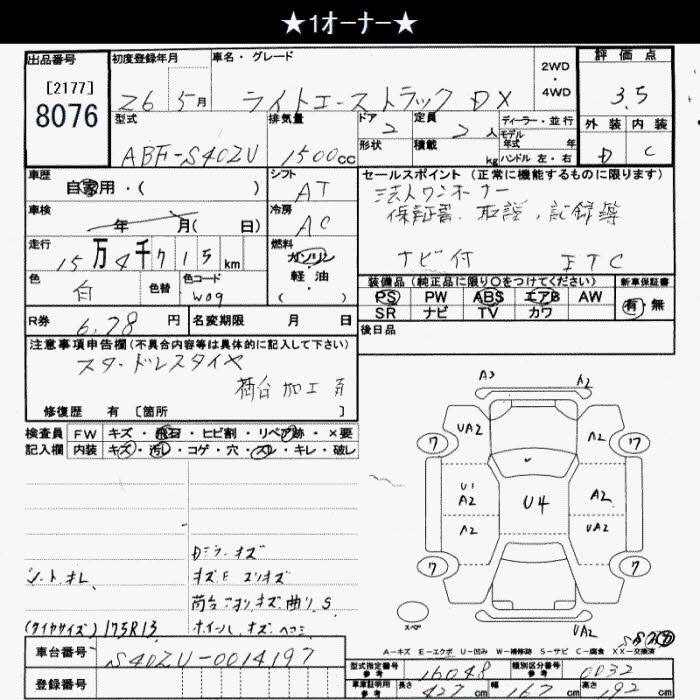 ★1オーナー★
出品番号
[2177]
8076
初度登録年月
26 5月
車名・グレード
ライトエーストラック DX
2WD
・
4WD
評価点
3.5
外装 内装
D C
型式
ABF-S402U
排気量
1500cc
ドア 2
形状
定員 2人
積載 kg
ディーラー・並行
モデル年式 年
ハンドル 左・右
車歴
自家用・( )
シフト
AT
車検
年 月( 日)
冷房
AC
走行
15万4千715km
燃料
ガソリン
・
軽油
( )
色
白
色替
色コード
W09
セールスポイント(正常に機能するものに限ります)
法人ワンオーナー
保証書、取説、記録簿
ナビ付 ETC
装備品(純正品に限り○をつけてください)
PS PW ABS エアB AW
SR ナビ TV カワ
新車保証書
有・無
R券
6.78円
名変期限 月 日
後日品
注意事項申告欄(不具合内容等は具体的に記入して下さい)
スタッドレスタイヤ
荷台加工有
修復歴 有 [箇所 ]
検査員
記入欄
FW キズ・飛石・ヒビ割・リペア跡・×要
内装 キズ・汚レ・コゲ・穴・スレ・キレ・破レ
Dミラーキズ
シートオレ
キズE スリキズ
荷台 アオリキズ曲り S
(タイヤサイズ) 175R13
ホイール、キズ、ヘコミ
A3 A2
UA2 A2
7 7
U1
A2
U4
A2
A2 UA2
7 7
スペア
UA2
A-キズ E-エクボ U-凹み W-補修跡 S-サビ C-腐食 XX-交換済
車台番号
S402U-0014197
登録番号
型式指定番号
参考
16048
類別区分番号
参考
0032
車庫証明用
参考
長さ 427cm
幅 167cm
高さ 192cm